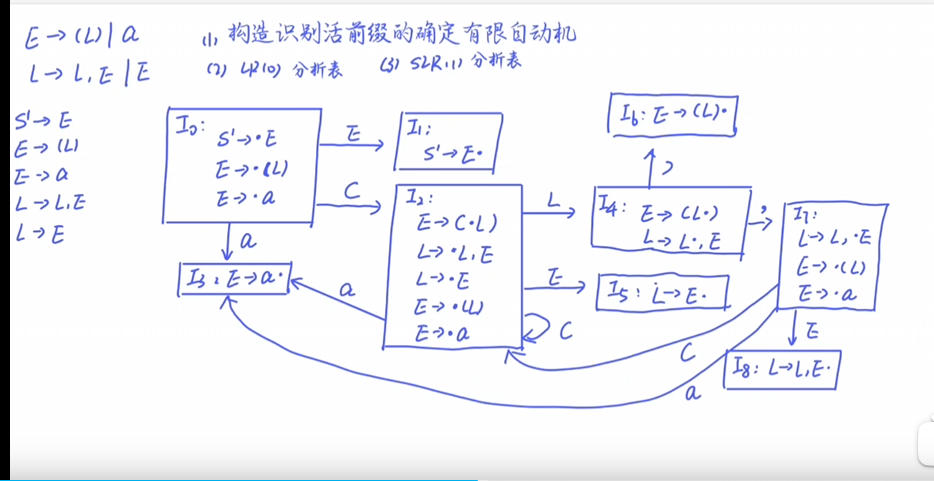 E → (L) | a
(1) 构造识别活前缀的确定有限自动机
L → L, E | E
(2) LR(0) 分析表
(3) SLR(1) 分析表
S' → E
E → (L)
E → a
L → L, E
L → E
I0:
S' → ·E
E → ·(L)
E → ·a
E
I1:
S' → E·
(
I2:
E → (·L)
L → ·L, E
L → ·E
E → ·(L)
E → ·a
a
I3: E → a·
a
L
I4: E → (L·)
L → L·, E
)
I6: E → (L)·
E
I5: L → E·
(
,
I7:
L → L, ·E
E → ·(L)
E → ·a
E
I8: L → L, E·
(
a